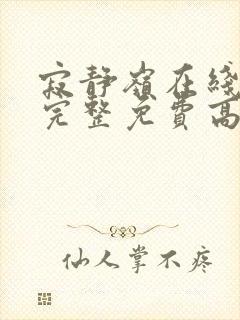 寂静岭在线
完整免费高
仙人掌不疼